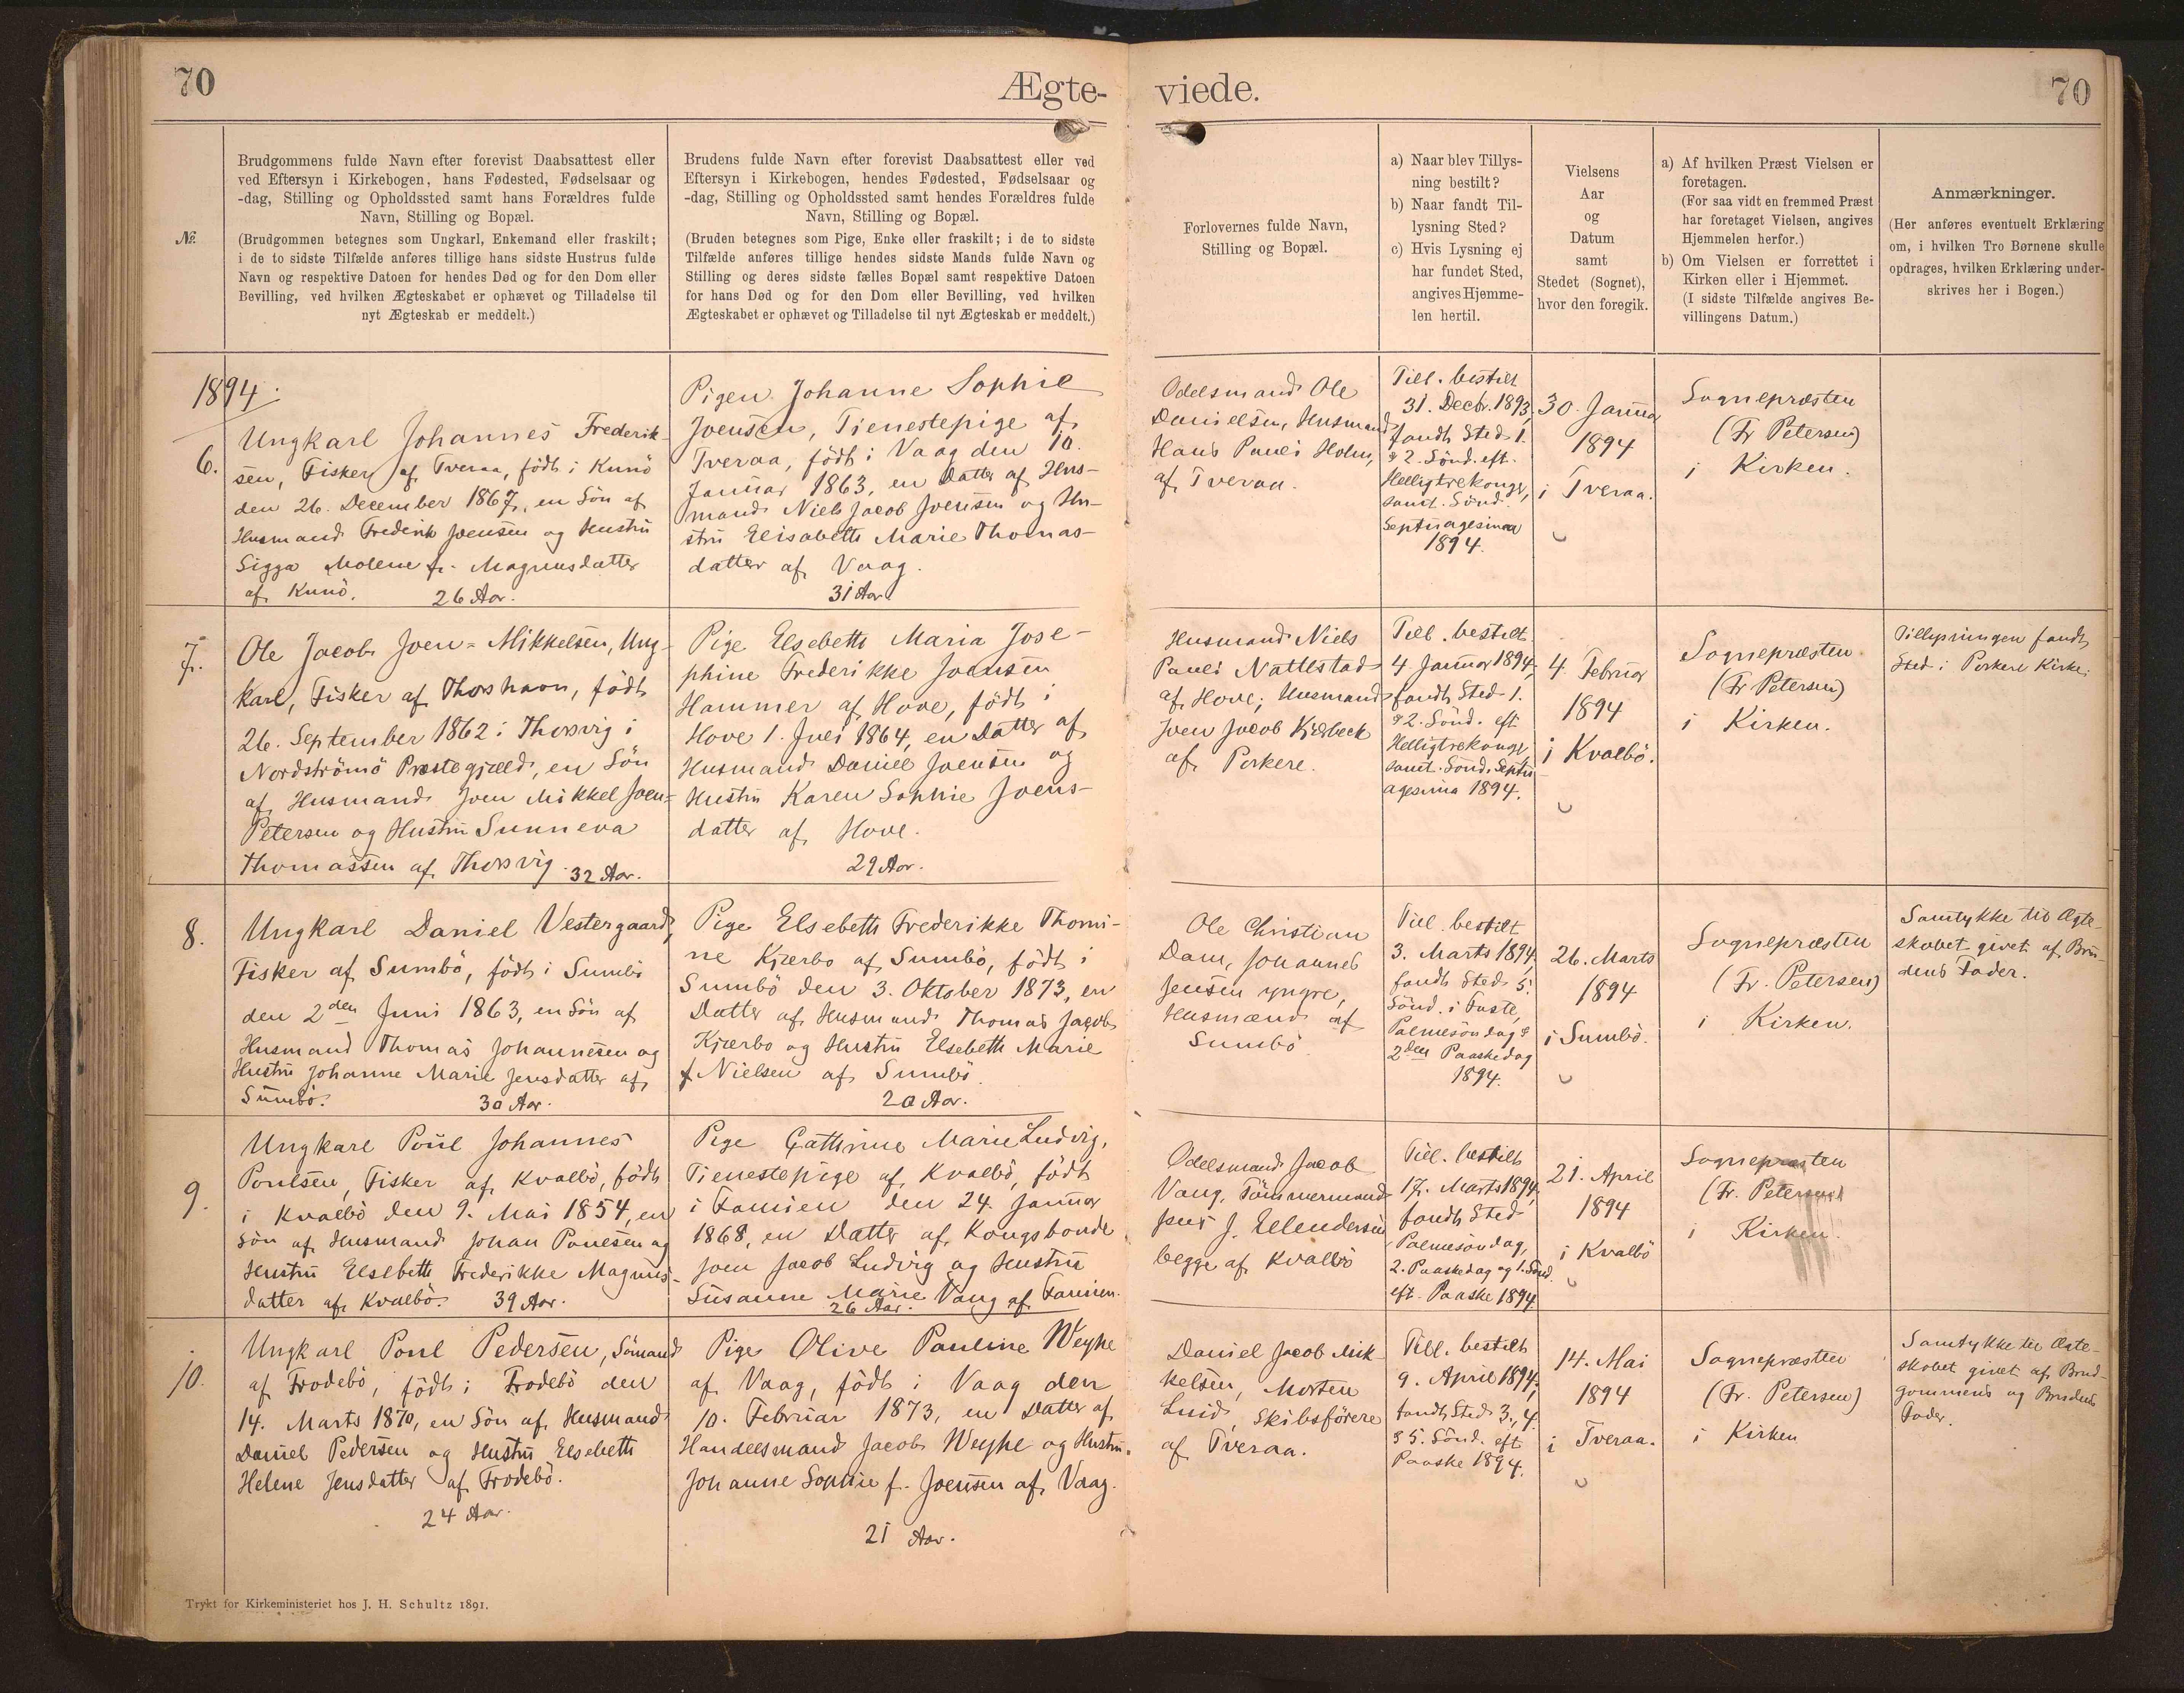 70
Ægte-
viede.
70
№.
Brudgommens fulde Navn efter forevist Daabsattest eller
ved Eftersyn i Kirkebogen, hans Fødested, Fødselsaar og
-dag, Stilling og Opholdssted samt hans Forældres fulde
Navn, Stilling og Bopæl.
(Brudgommen betegnes som Ungkarl, Enkemand eller fraskilt;
i de to sidste Tilfælde anføres tillige hans sidste Hustrus fulde
Navn og respektive Datoen for hendes Død og for den Dom eller
Bevilling, ved hvilken Ægteskabet er ophævet og Tilladelse til
nyt Ægteskab er meddelt.)
Brudens fulde Navn efter forevist Daabsattest eller ved
Eftersyn i Kirkebogen, hendes Fødested, Fødselsaar og
-dag, Stilling og Opholdssted samt hendes Forældres fulde
Navn, Stilling og Bopæl.
(Bruden betegnes som Pige, Enke eller fraskilt; i de to sidste
Tilfælde anføres tillige hendes sidste Mands fulde Navn og
Stilling og deres sidste fælles Bopæl samt respektive Datoen
for hans Død og for den Dom eller Bevilling, ved hvilken
Ægteskabet er ophævet og Tilladelse til nyt Ægteskab er meddelt.)
Forlovernes fulde Navn,
Stilling og Bopæl.
a) Naar blev Tillys-
ning bestilt?
b) Naar fandt Til-
lysning Sted?
c) Hvis Lysning ej
har fundet Sted,
angives Hjemme-
len hertil.
Vielsens
Aar
og
Datum
samt
Stedet (Sognet),
hvor den foregik.
a) Af hvilken Præst Vielsen er
foretagen.
(For saa vidt en fremmed Præst
har foretaget Vielsen, angives
Hjemmelen herfor.)
b) Om Vielsen er forrettet i
Kirken eller i Hjemmet.
(I sidste Tilfælde angives Be-
villingens Datum.)
Anmærkninger.
(Her anføres eventuelt Erklæring
om, i hvilken Tro Børnene skulle
opdrages, hvilken Erklæring under-
skrives her i Bogen.)
1894:
6.
Ungkarl Johannes Frederik-
sen, Fisker af Tveraa, født i Kunö
den 26. December 1867, en Sön af
Husmand Frederik Joensen og Hustru
Sigga Malene f. Magnusdatter
af Kunö. 26 Aar.
Pigen Johanne Sophie
Joensen, Tienestepige af
Tveraa, født i Vaag den 10.
Januar 1863, en Datter af Hus-
mand Niels Jacob Joensen og Hu-
stru Elisabeth Marie Thomas-
datter af Vaag.
31 Aar
Odelsmand Ole
Danielsen, Husmand
Hans Pauli Holm,
af Tveraa.
Till. bestilt
31. Decbr. 1893,
fandt Sted 1.
& 2. Sönd. eft.
Helligtrekonger,
samt Sönd.
Septuagesima
1894.
30. Januar
1894
i Tveraa.
Sognepræsten
(Fr Petersen)
i Kirken.
7.
Ole Jacob Joen=Mikkelsen, Ung-
karl, Fisker af Thorshavn, født
26. September 1862 i Thorsvig i
Nordströmö Præstegjæld, en Sön
af Husmand Joen Mikkel Joen=
Petersen og Hustru Sunneva
Thomassen af Thorsvig. 32 Aar.
Pige Elsebeth Maria Jose-
phine Frederikke Joensen
Hammer af Hove, født i
Hove 1. Juli 1864, en Datter af
Husmand Daniel Joensen og
Hustru Karen Sophie Joens-
datter af Hove.
29 Aar.
Husmand Niels
Pauli Nattestad
af Hove; Husmand
Joen Jacob Kjærbeck
af Porkere.
Till. bestilt
4. Januar 1894,
fandt Sted 1.
& 2. Sönd. eft
Helligtrekonger
samt Sönd. Septu-
agesima 1894.
4. Februar
1894
i Kvalbö.
Sognepræsten
(Fr Petersen)
i Kirken.
Tillysningen fandt
Sted i Porkere Kirke.
8.
Ungkarl Daniel Vestergaard,
Fisker af Sumbö, født i Sumbö
den 2den Juni 1863, en Sön af
Husmand Thomas Johannesen og
Hustru Johanne Marie Jensdatter af
Sumbö. 30 Aar.
Pige Elsebeth Frederikke Thomi-
ne Kjærbo af Sumbö, født i
Sumbö den 3. Oktober 1873, en
Datter af Husmand Thomas Jacob
Kjærbo og Hustru Elsebeth Marie
f. Nielsen af Sumbö.
20 Aar.
Ole Christian
Dam, Johannes
Jensen yngre,
Husmænd af
Sumbö
Till. bestilt
3. Marts 1894,
fandt Sted 5.
Sönd. i Faste,
Palmesöndag &
2den Paaskedag
1894.
26. Marts
1894
i Sumbö.
Sognepræsten
(Fr. Petersen)
i Kirken.
Samtykke til Ægte-
skabet givet af Bru-
dens Fader.
9.
Ungkarl Poul Johannes
Poulsen, Fisker af Kvalbö, født
i Kvalbö den 9. Mai 1854, en
Sön af Husmand Johan Poulsen og
Hustru Elsebeth Frederikke Magnus-
datter af Kvalbö. 39 Aar.
Pige Cathrine Marie Ludvig,
Tienestepige af Kvalbö, født
i Famien den 24. Januar
1868, en Datter af Kongsbonde
Joen Jacob Ludvig og Hustru
Susanne Marie Vang af Famien.
26 Aar.
Odelsmand Jacob
Vang, Tömmermand
Jens J. Ellendersen
begge af Kvalbö
Till. bestilt
17. Marts 1894,
fandt Sted
Palmesöndag,
2. Paaskedag og 1. Sönd.
eft. Paaske 1894
21. April
1894
i Kvalbö
Sognepræsten
(Fr. Petersen)
i Kirken.
10.
Ungkarl Poul Pedersen, Sömand
af Frodebö, født i Frodebö den
14. Marts 1870, en Sön af Husmand
Daniel Pedersen og Hustru Elsebeth
Helene Jensdatter af Frodebö.
24 Aar.
Pige Olive Pauline Weyhe
af Vaag, født i Vaag den
10. Februar 1873, en Datter af
Handelsmand Jacob Weyhe og Hustru
Johanne Sophie f. Joensen af Vaag.
21 Aar.
Daniel Jacob Mik-
kelsen, Morten
Luid, Skibsförere
af Tveraa.
Till. bestilt
9. April 1894,
fandt Sted 3., 4.
& 5. Sönd. eft
Paaske 1894.
14. Mai
1894
i Tveraa.
Sognepræsten
(Fr. Petersen)
i Kirken
Samtykke til Ægte-
skabet givet af Brud-
gommens og Brudens
Fader.
Trykt for Kirkeministeriet hos J. H. Schultz 1891.